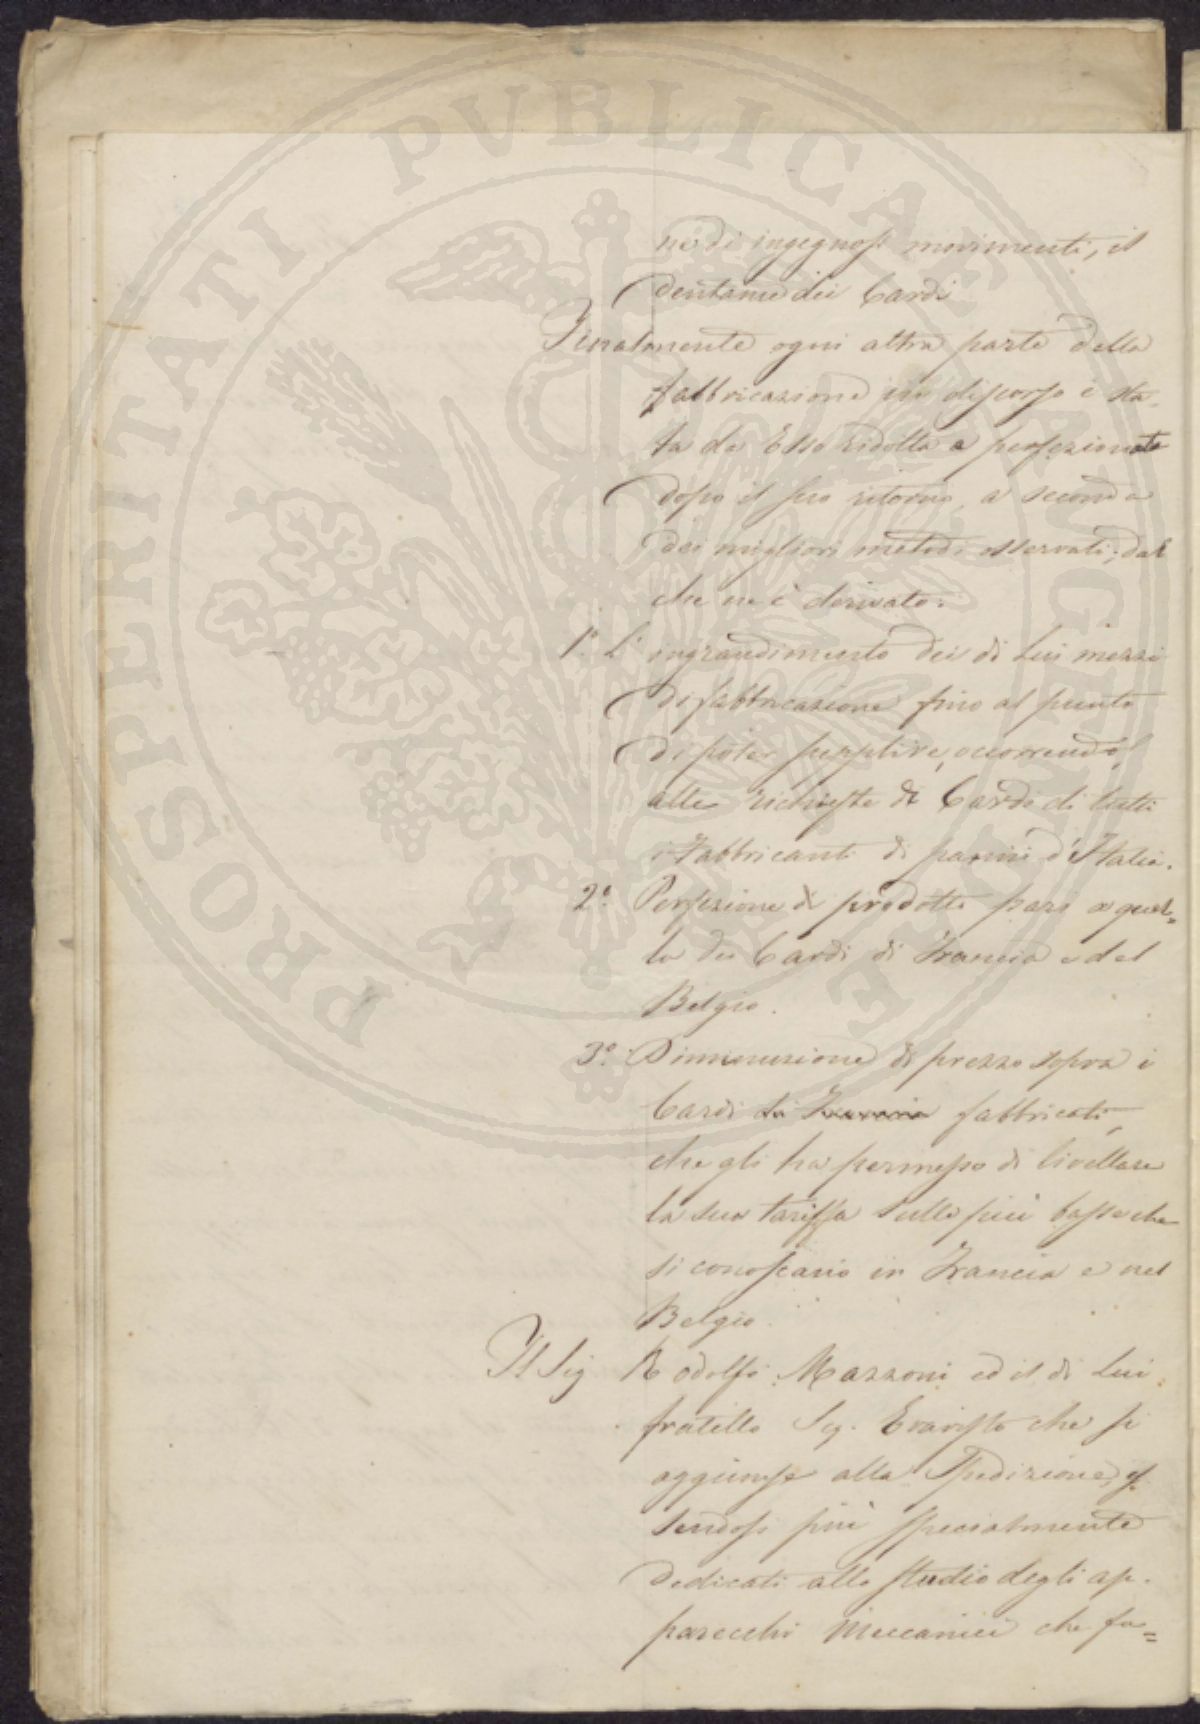 ne di ingegnosi movimenti, il
dentame dei Cardi
Finalmente ogni altra parte della
fabbricazione in discorso è sta=
ta da Esso ridotta a perfezionata
dopo il suo ritorno, a seconda
dei migliori metodi osservati; dal
che ne è derivato:
1º L'ingrandimento dei di Lui mezzi
di fabbricazione fino al punto
di poter supplire, occorrendo,
alle richieste di Cardi di tutti
i Fabbricanti di pannini d'Italia.
2º Perfezione di prodotti pari a quel=
la dei Cardi di Francia e del
Belgio.
3º Diminuzione di prezzo sopra i
Cardi di Francia fabbricati,
che gli ha permesso di livellare
la sua tariffa sulle più basse che
si conoscano in Francia e nel
Belgio.
Il Sig Rodolfo Mazzoni ed il di Lui
fratello Sig. Evaristo che si
aggiunse alla Spedizione, es=
sendosi più specialmente
dedicati allo studio degli ap=
parecchi Meccanici che fa=
PROSPERITATI PUBLICAE AUGENDAE